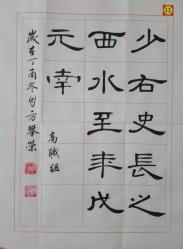 少右史長之
西水至年戊
元幸
高職組
歲在丁酉冬旬方攀榮